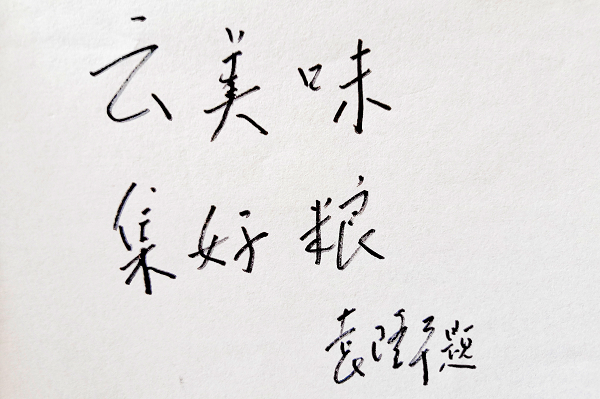 云美味
集好粮
袁隆平题